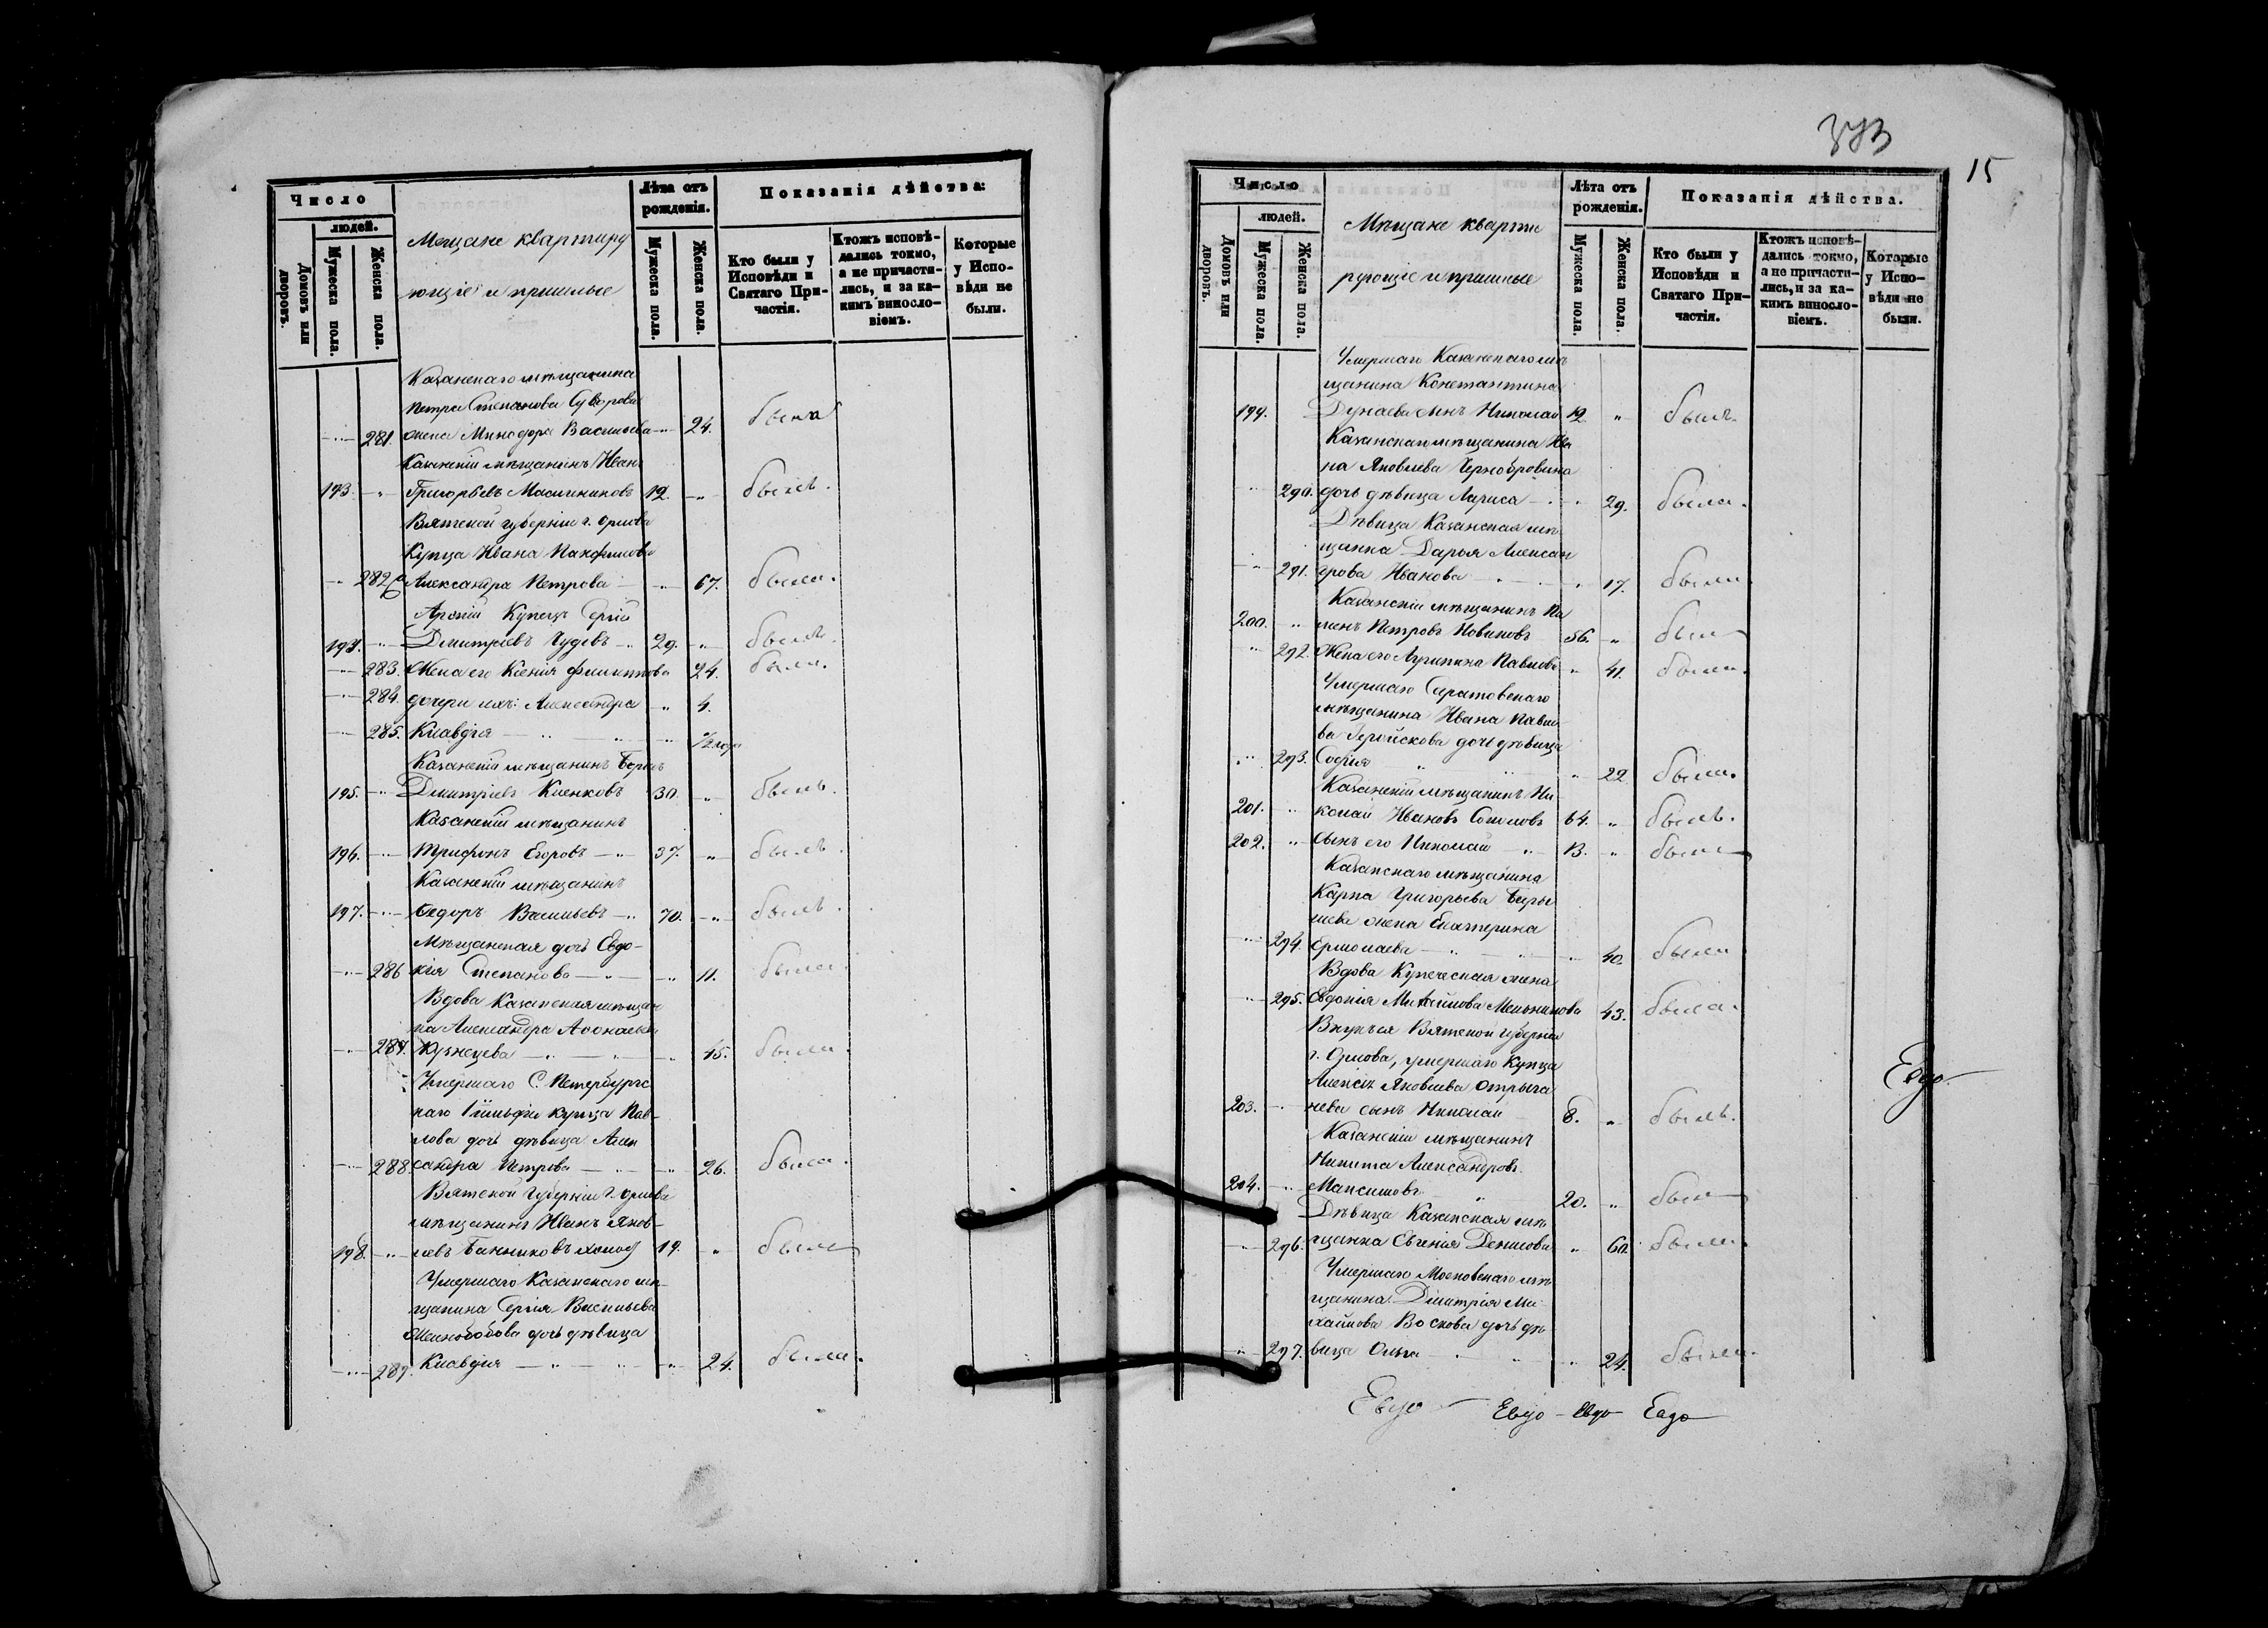 Число
людей.
Домовъ или дворовъ.
Мужеска пола.
Женска пола.
Мещане квартиру
ющіе и пришлые
Лѣта отъ рожденія.
Мужеска пола.
Женска пола.
Показанія дѣйства:
Кто были у Исповѣди и Святаго Причастія.
Ктожъ исповѣдались токмо, а не причастились, и за какимъ винословіемъ.
Которые у Исповѣди не были.
Казанскаго мѣщанина
Петра Степанова Суворова
281. жена Минодора Васильева 24. была
Казанскій мѣщанинъ Иванъ
193. Григорьевъ 12. былъ.
Вятской губерніи г. Орлова
Купца Ивана Панфилова
282 Александра Петрова 67. была.
Купецъ Сергій
194. Дмитріевъ Чудевъ 29. былъ.
283. Жена его Ксенія Филиппова 24. была.
284. дочери ихъ: Александра 4.
285. Клавдія 1/2 года
Казанскій мѣщанинъ Борисъ
195. Дмитріевъ Кленковъ 30. былъ.
Казанскій мѣщанинъ
196. Трифонъ Егоровъ 37. былъ.
Казанскій мѣщанинъ
197. Ѳедоръ Васильевъ 70. былъ.
Мѣщанская дочь Евдо-
286 кія Степанова 11. была.
Вдова Казанская мѣщан
ка Александра Аѳонасьева
287. Кузнецева 45. была.
Умершаго С. Петербургс
каго 1 гильдіи купца Пав-
лова дочь дѣвица Алек
288. сандра Петрова 26. была.
Вятской губерніи г. Орлова
мѣщанинъ Иванъ Яков-
198. левъ Банниковъ холос 19. былъ
Умершаго Казанскаго мѣ-
щанина Сергія Васильева
дочь дѣвица
289. Клавдія 24. была.
373
15
Число
людей.
Домовъ или дворовъ.
Мужеска пола.
Женска пола.
Мѣщане кварти
рующіе и пришлые
Лѣта отъ рожденія.
Мужеска пола.
Женска пола.
Показанія дѣйства.
Кто были у Исповѣди и Святаго Причастія.
Ктожъ исповѣдались токмо, а не причастились, и за какимъ винословіемъ.
Которые у Исповѣди не были.
Умершаго Казанскаго мѣ
щанина Константина
199. Дунаева сынъ Николай 12 былъ.
Казанскаго мѣщанина Ива
на Яковлева Чернобровина
290. дочь дѣвица Лариса 29. была.
Дѣвица Казанская мѣ
щанка Дарья Алексан
291. дрова Иванова 17. была.
Казанскій мѣщанинъ Па
200. менъ Петровъ Новиковъ 56. былъ
292. Жена его Агрипина Павлова 41. была.
Умершаго Саратовскаго
мѣщанина Ивана Павло
ва дочь дѣвица
293. Софія 22 была.
Казанскій мѣщанинъ Ни
201. колай Ивановъ Соколовъ 64. былъ.
202. сынъ его Николай 13. былъ
Казанскаго мѣщанина
Карпа Григорьева Беры
шева жена Екатерина
294. Ермолаева 40. была.
Вдова Купеческая жена
295. Евдокія Михайлова Мельникова 43. была.
Внукъ ея Вятской губерніи
г. Орлова, умершаго купца
Алексія Яковлева Отрыга
203. нева сынъ Николай 8. былъ.
Казанскій мѣщанинъ
Никита Александровъ
204. Максимовъ 20. былъ
Дѣвица Казанская мѣ
296. щанка Евгенія Денисова 60. была.
Умершаго Московскаго мѣ
щанина Дмитрія Ми
хайлова Воскова дочь дѣ
297. вица Ольга 24. была.
Евдо
Евдо - Евдо Евдо